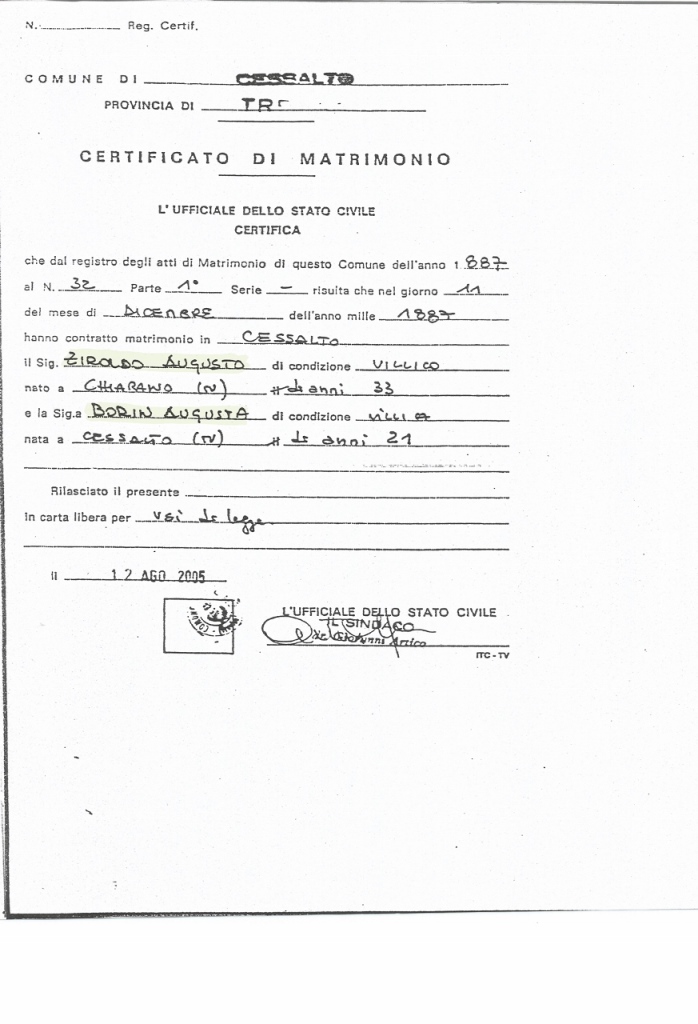 N. Reg. Certif.
COMUNE DI CESSALTO
PROVINCIA DI
CERTIFICATO DI MATRIMONIO
L'UFFICIALE DELLO STATO CIVILE
CERTIFICA
che dal registro degli atti di Matrimonio di questo Comune dell'anno 1 887
al N. 32 Parte 1° Serie - risulta che nel giorno 11
del mese di DICEMBRE dell'anno mille 1887
hanno contratto matrimonio in CESSALTO
il Sig. ZIROLDO AUGUSTO di condizione VILLICO
nato a CHIARANO (TV) di anni 33
e la Sig.a BORIN AUGUSTA di condizione
nata a CESSALTO (TV) di anni 21
Rilasciato il presente
in carta libera per usi di legge
li 12 AGO 2005
L'UFFICIALE DELLO STATO CIVILE
IL SINDACO
Giovanni Artico
ITC-TV